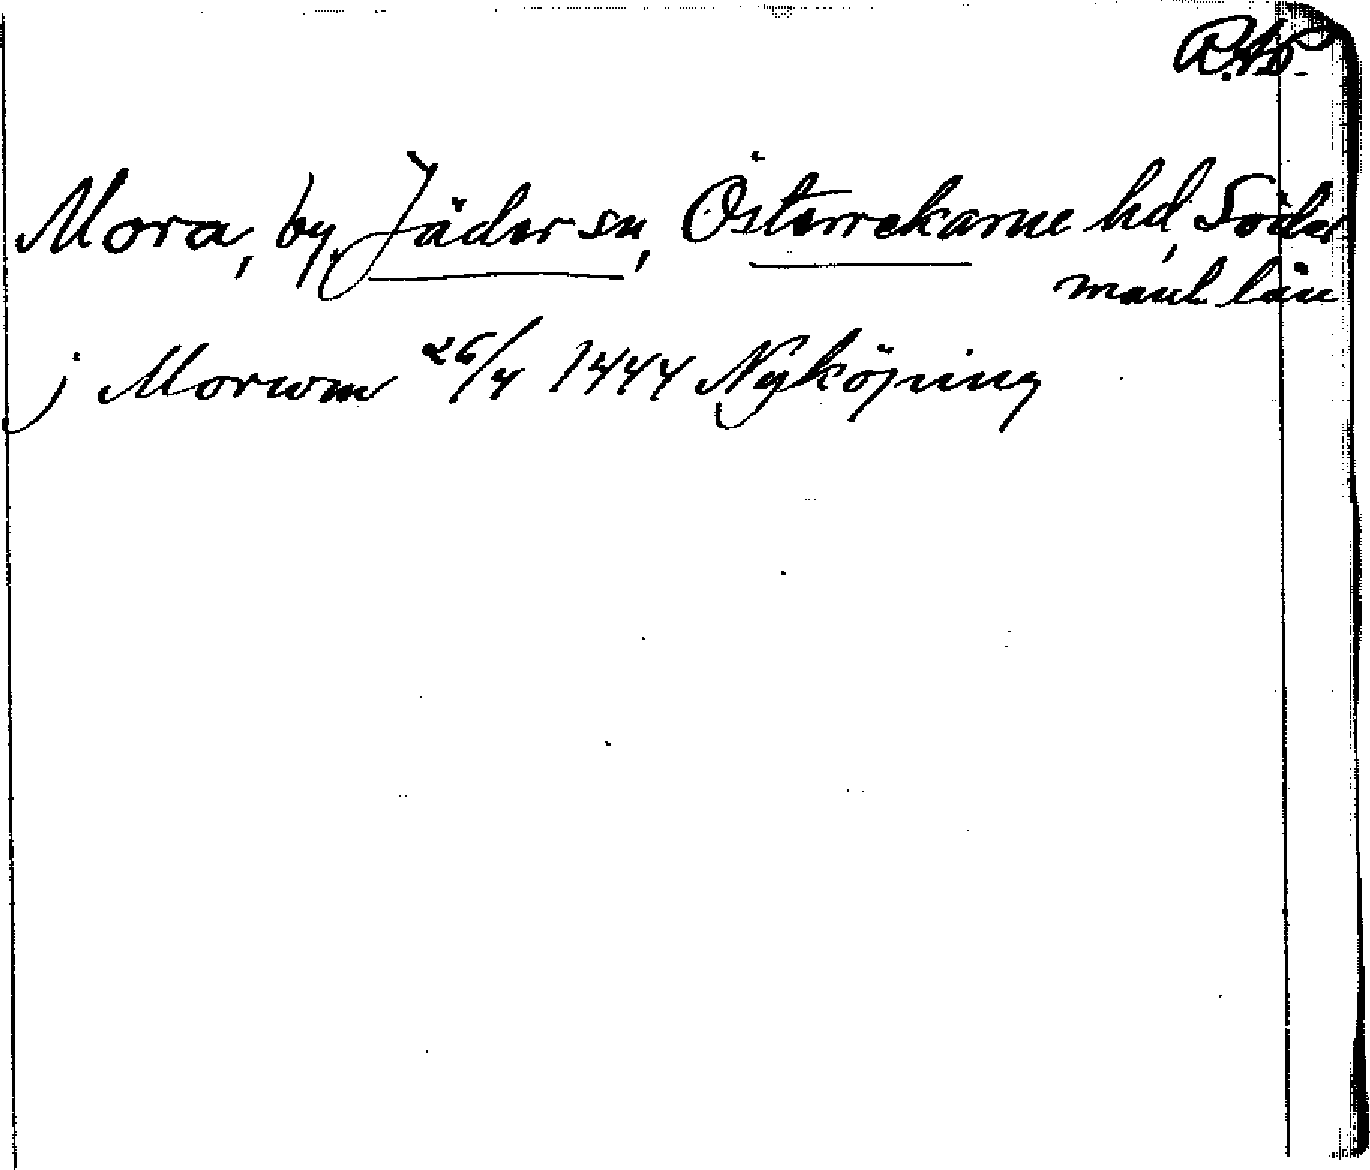 Mora, by, Jäder sn, Österrekarne hd, Söder
manl län
j Morum 26/4 1444 Nyköping